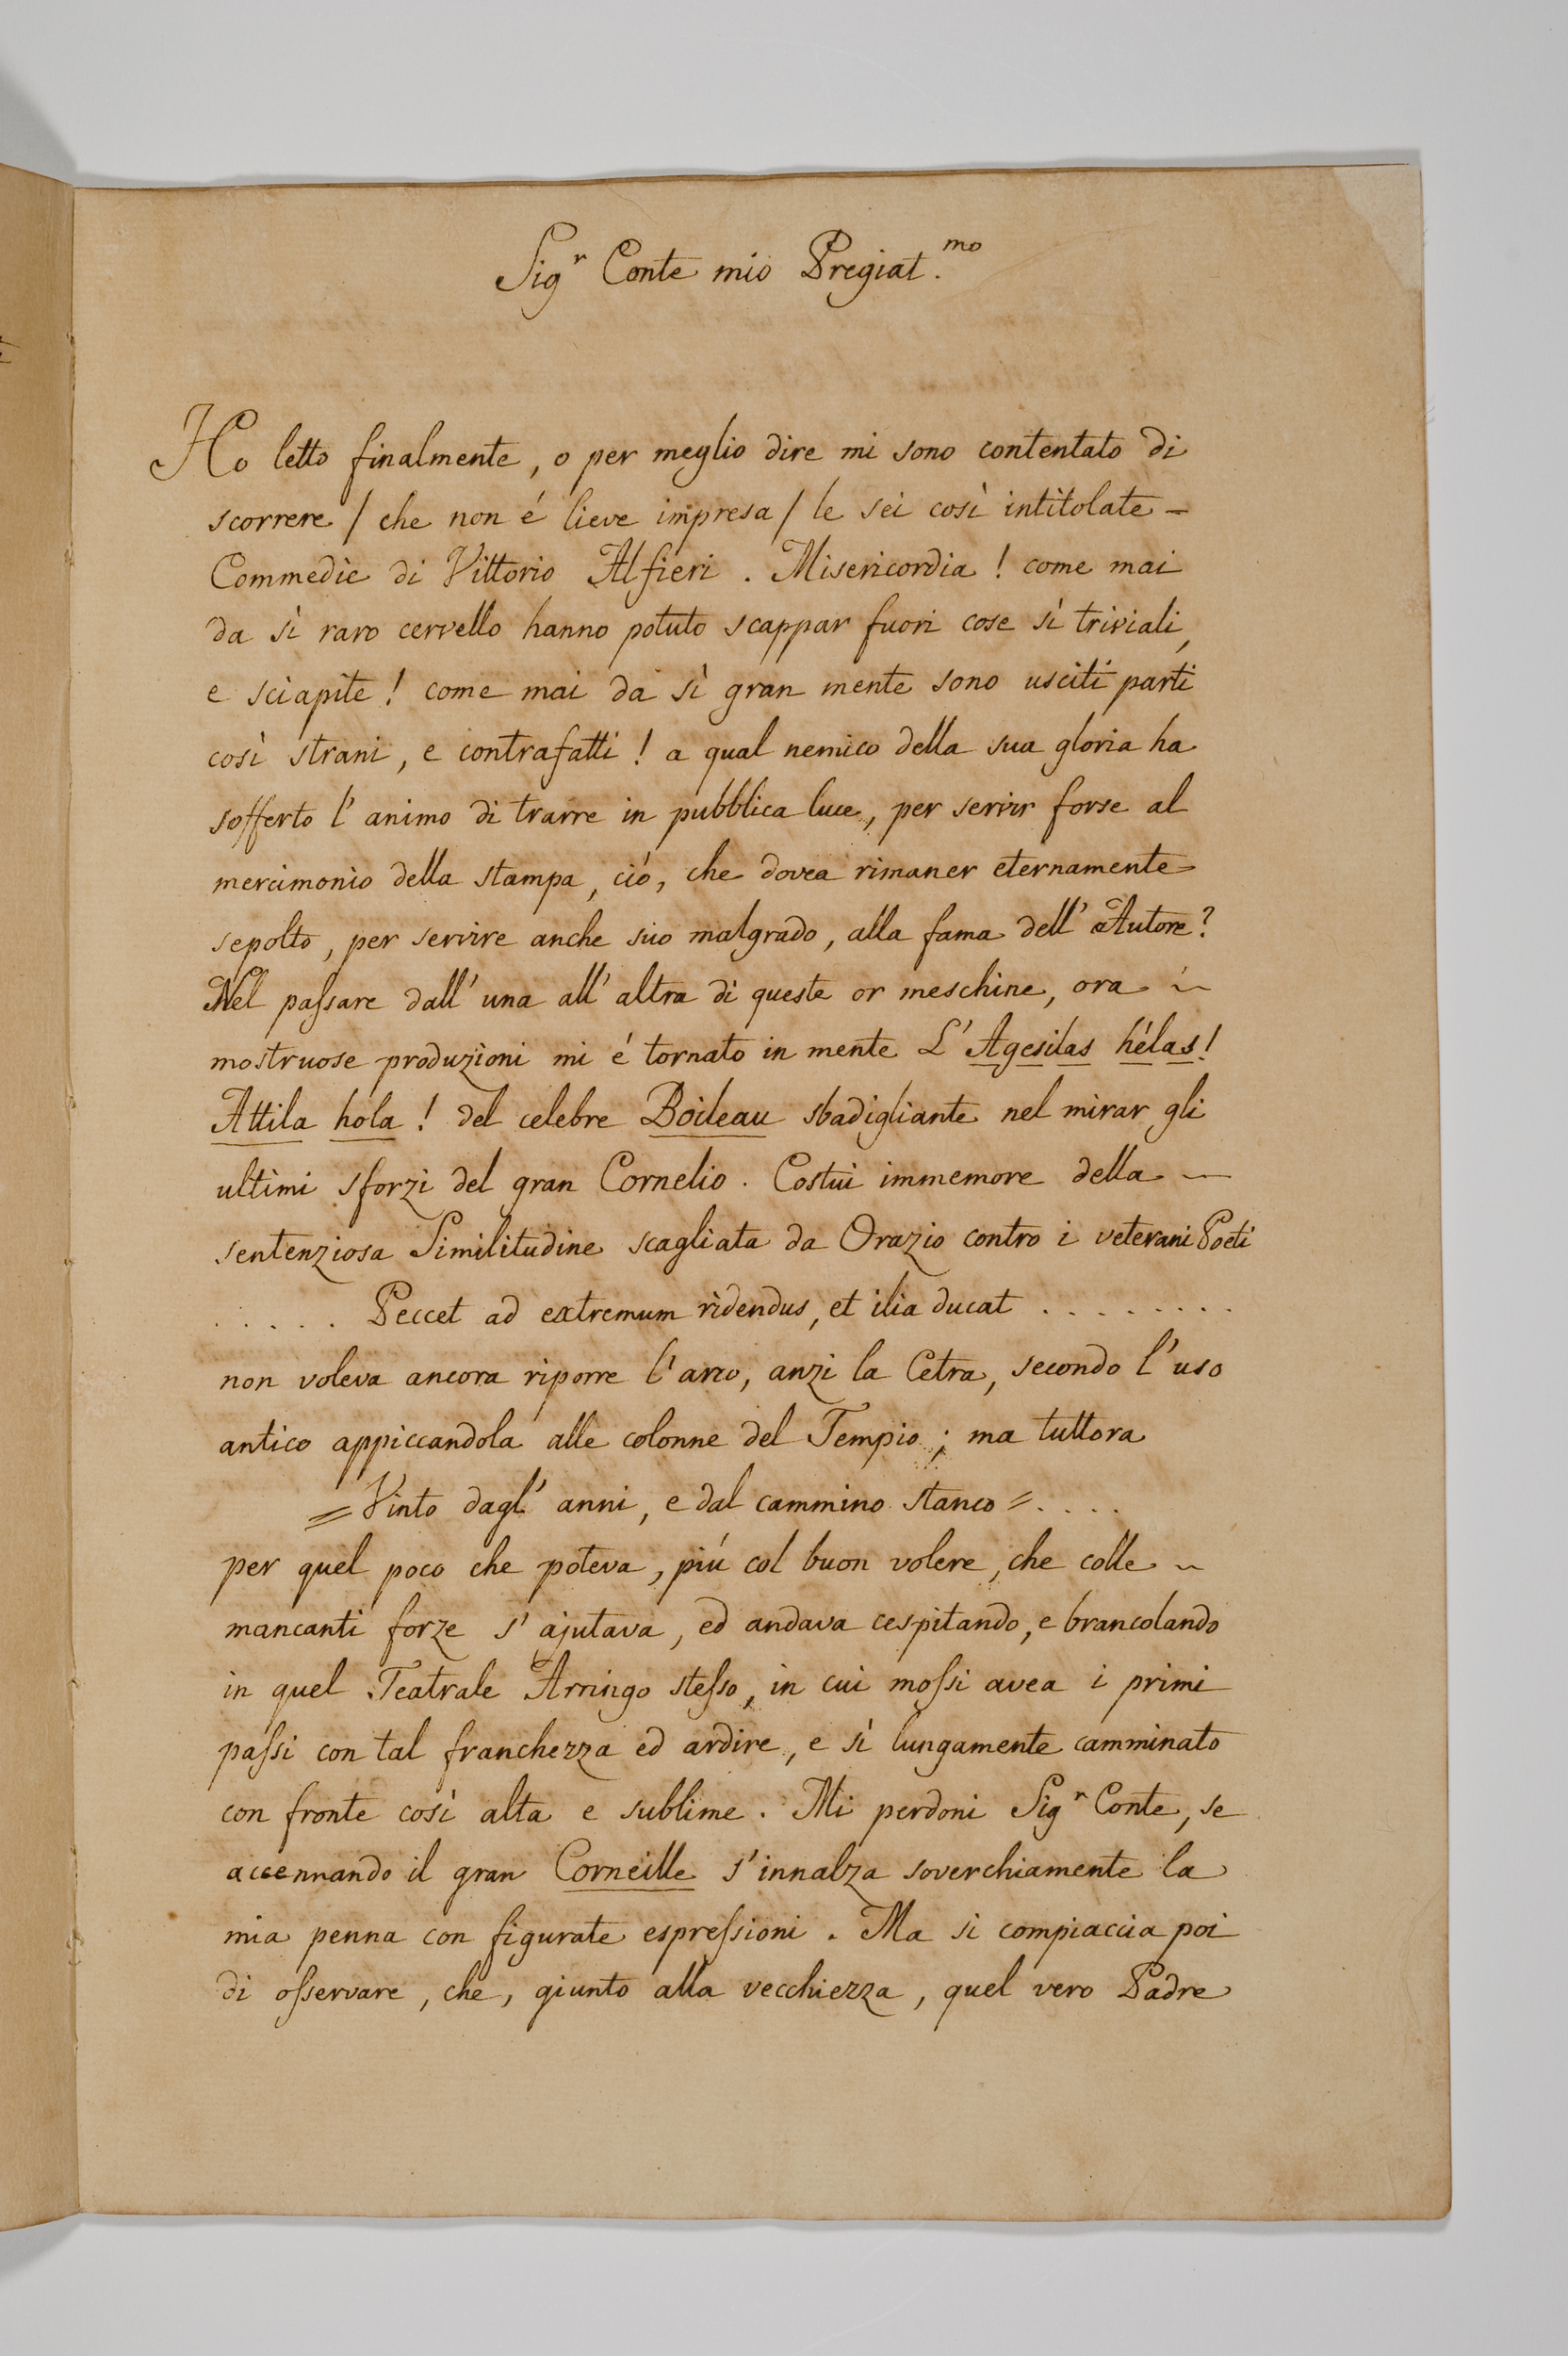 Sig.r Conte mio Pregiat.mo
Ho letto finalmente, o per meglio dire mi sono contentato di
scorrere / che non é lieve impresa / le sei così intitolate –
Commedie di Vittorio Alfieri . Misericordia ! come mai
da sì raro cervello hanno potuto scappar fuori cose sì triviali,
e sciapite ! come mai da sì gran mente sono usciti parti
così strani, e contrafatti ! a qual nemico della sua gloria ha
sofferto l'animo di trarre in pubblica luce, per servir forse al
mercimonio della stampa, ció, che dovea rimaner eternamente
sepolto, per servire anche suo malgrado, alla fama dell'Autore?
Nel paſsare dall'una all'altra di queste or meschine, ora ~
mostruose produzioni mi é tornato in mente L'Agesilas hélas!
Attila hola ! del celebre Boileau sbadigliante nel mirar gli
ultimi sforzi del gran Cornelio . Costui immemore della ~
sentenziosa Similitudine scagliata da Orazio contro i veterani Poeti
. . . . . Peccet ad extremum ridendus, et ilia ducat . . . . . . . .
non voleva ancora riporre l'arco, anzi la Cetra, secondo l'uso
antico appiccandola alle colonne del Tempio ; ma tuttora
= Vinto dagl'anni, e dal cammino stanco = . . . .
per quel poco che poteva, piú col buon volere, che colle ~
mancanti forze s'ajutava, ed andava cespitando, e brancolando
in quel Teatrale Arringo steſso, in cui moſsi avea i primi
paſsi con tal franchezza ed ardire, e sì lungamente camminato
con fronte così alta e sublime . Mi perdoni Sig.r Conte, se
accennando il gran Corneille s'innalza soverchiamente la
mia penna con figurate espreſsioni . Ma si compiaccia poi
di oſservare, che, giunto alla vecchiezza, quel vero Padre